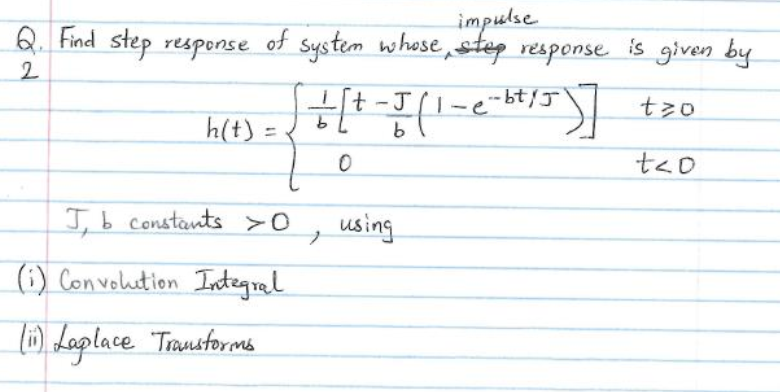 impulse
Q. Find step response of system whose, step response is given by
2
h(t) = { 1/b [t - J/b (1 - e^-bt/J)] t ≥ 0
0 t < 0
J, b constants > 0, using
(i) Convolution Integral
(ii) Laplace Transforms